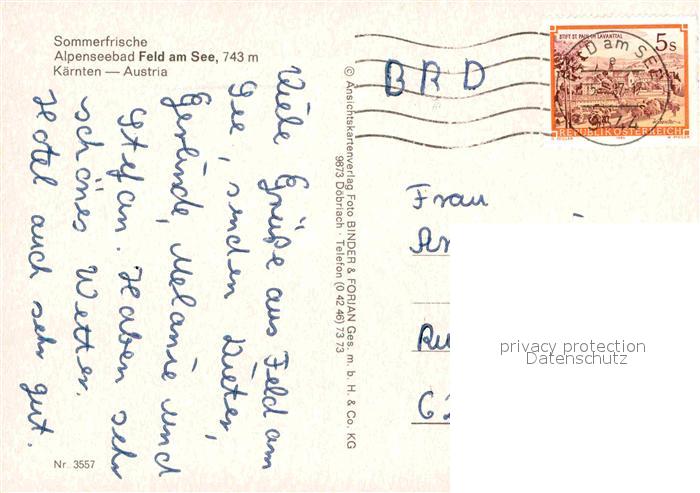 Sommerfrische
Alpenseebad Feld am See, 743 m
Kärnten — Austria
Viele Grüße aus Feld am
See, senden Dieter,
Gerlinde, Melanie und
Stefan. Haben sehr
schönes Wetter.
Hotel auch sehr gut.
Nr. 3557
© Ansichtskartenverlag Foto BINDER & FORIAN Ges. m. b. H. & Co. KG
9873 Döbriach · Telefon (0 42 46) 73 73
BRD
STIFT ST. PAUL IM LAVANTTAL
5 S
REPUBLIK ÖSTERREICH
FELD am SEE
Frau
privacy protection
Datenschutz